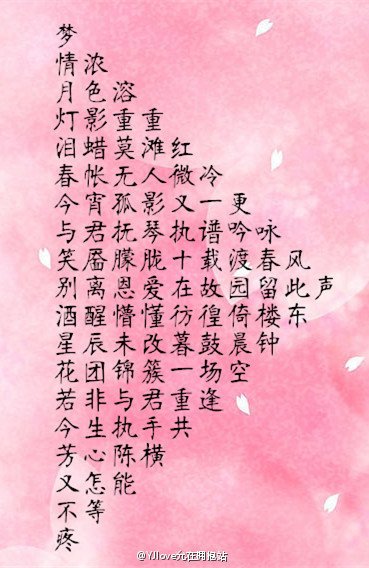 梦
情浓
月色溶
灯影重重
泪蜡莫滩红
春帐无人微冷
今宵孤影又一更
与君抚琴执谱吟咏
笑靥朦胧十载渡春风
别离恩爱在故园留此声
酒醒懵懂彷徨倚楼东
星辰未改暮鼓晨钟
花团锦簇一场空
若非与君重逢
今生执手共
芳心陈横
又怎能
不等
疼
@YJlove允在拥抱站